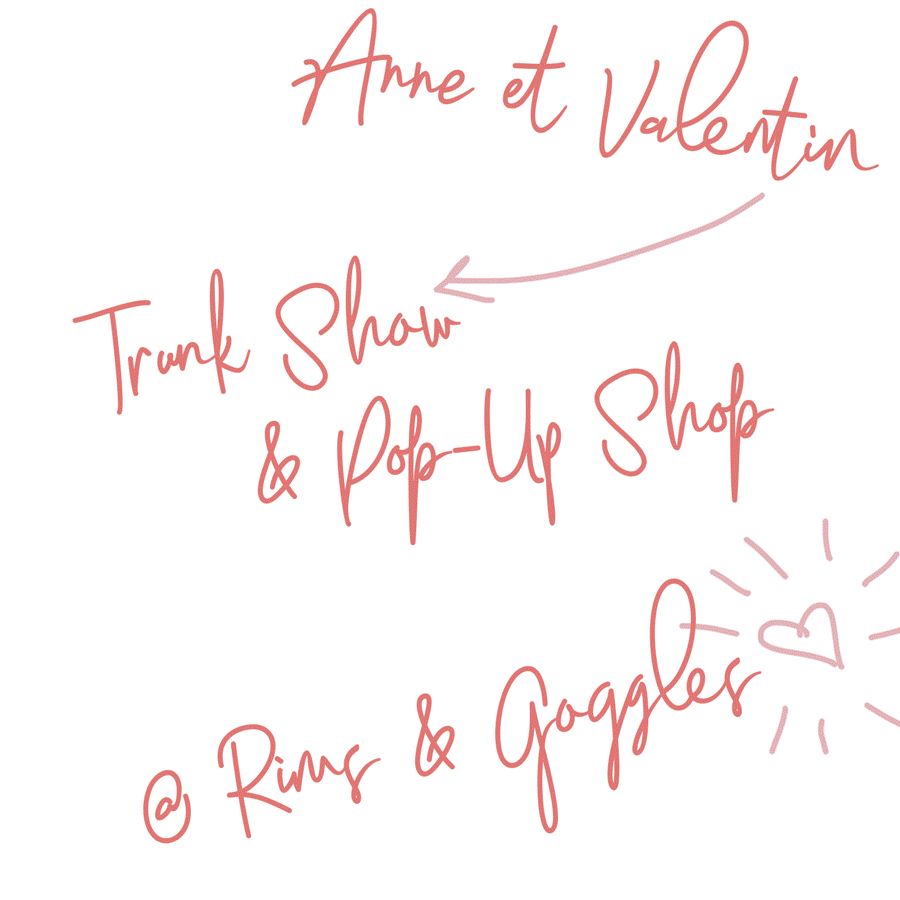 Anne et Valentin
Trunk Show
& Pop-Up Shop
@ Rims & Goggles